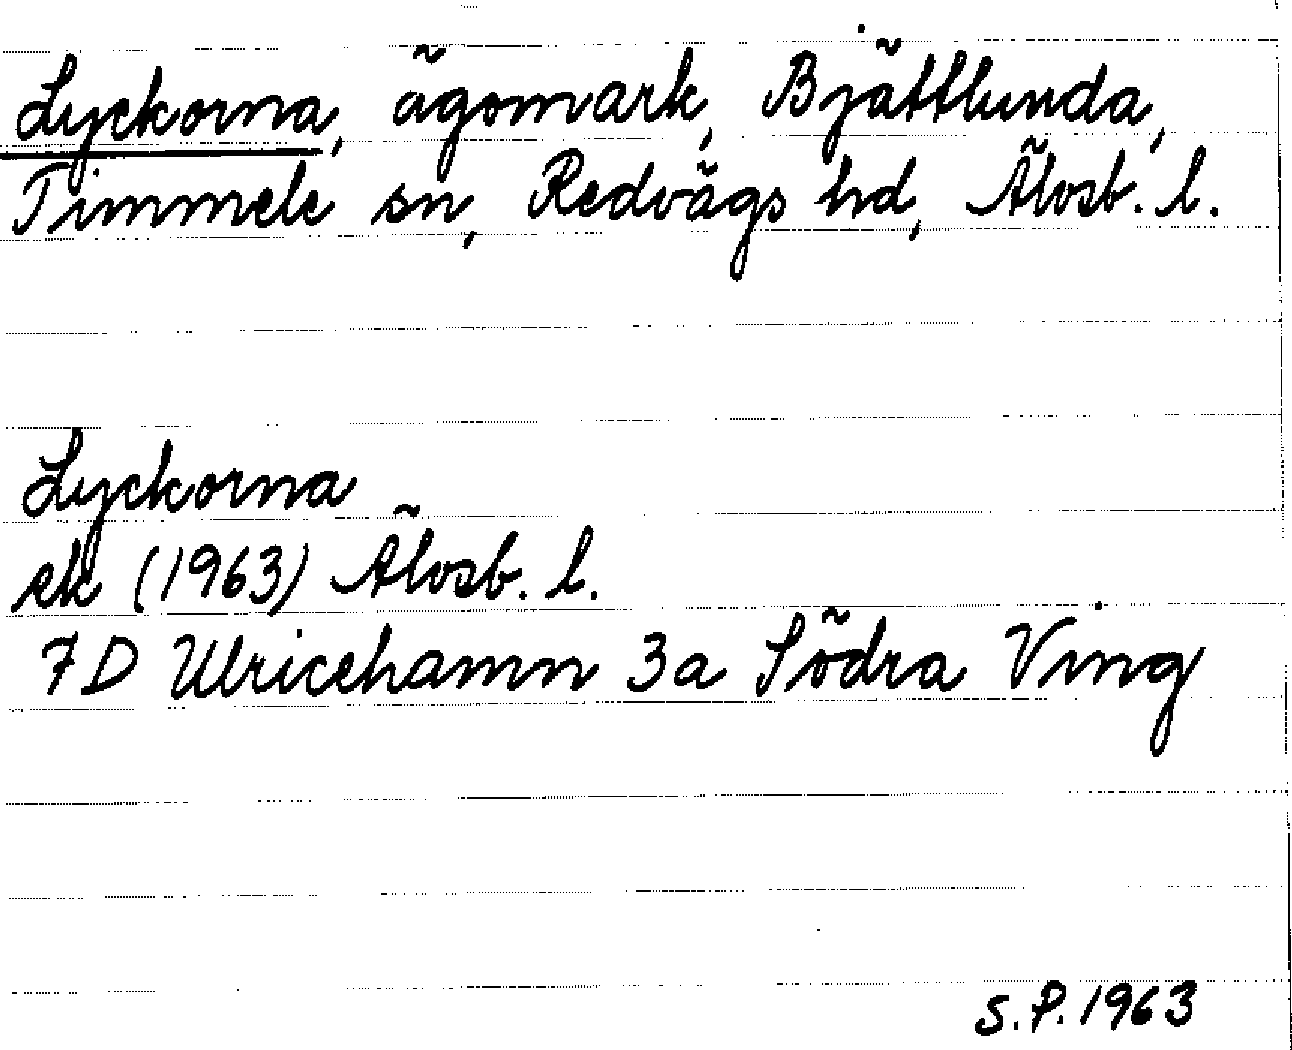 Lyckorna, ägomark, Bjättlunda,
Timmele sn, Redvägs hd, Älvsb. l.
Lyckorna
ek (1963) Älvsb. l.
7D Ulricehamn 3a Södra Ving
S.P. 1963